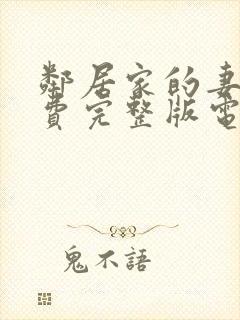 鄰居家的妻
費完整版電
鬼不語